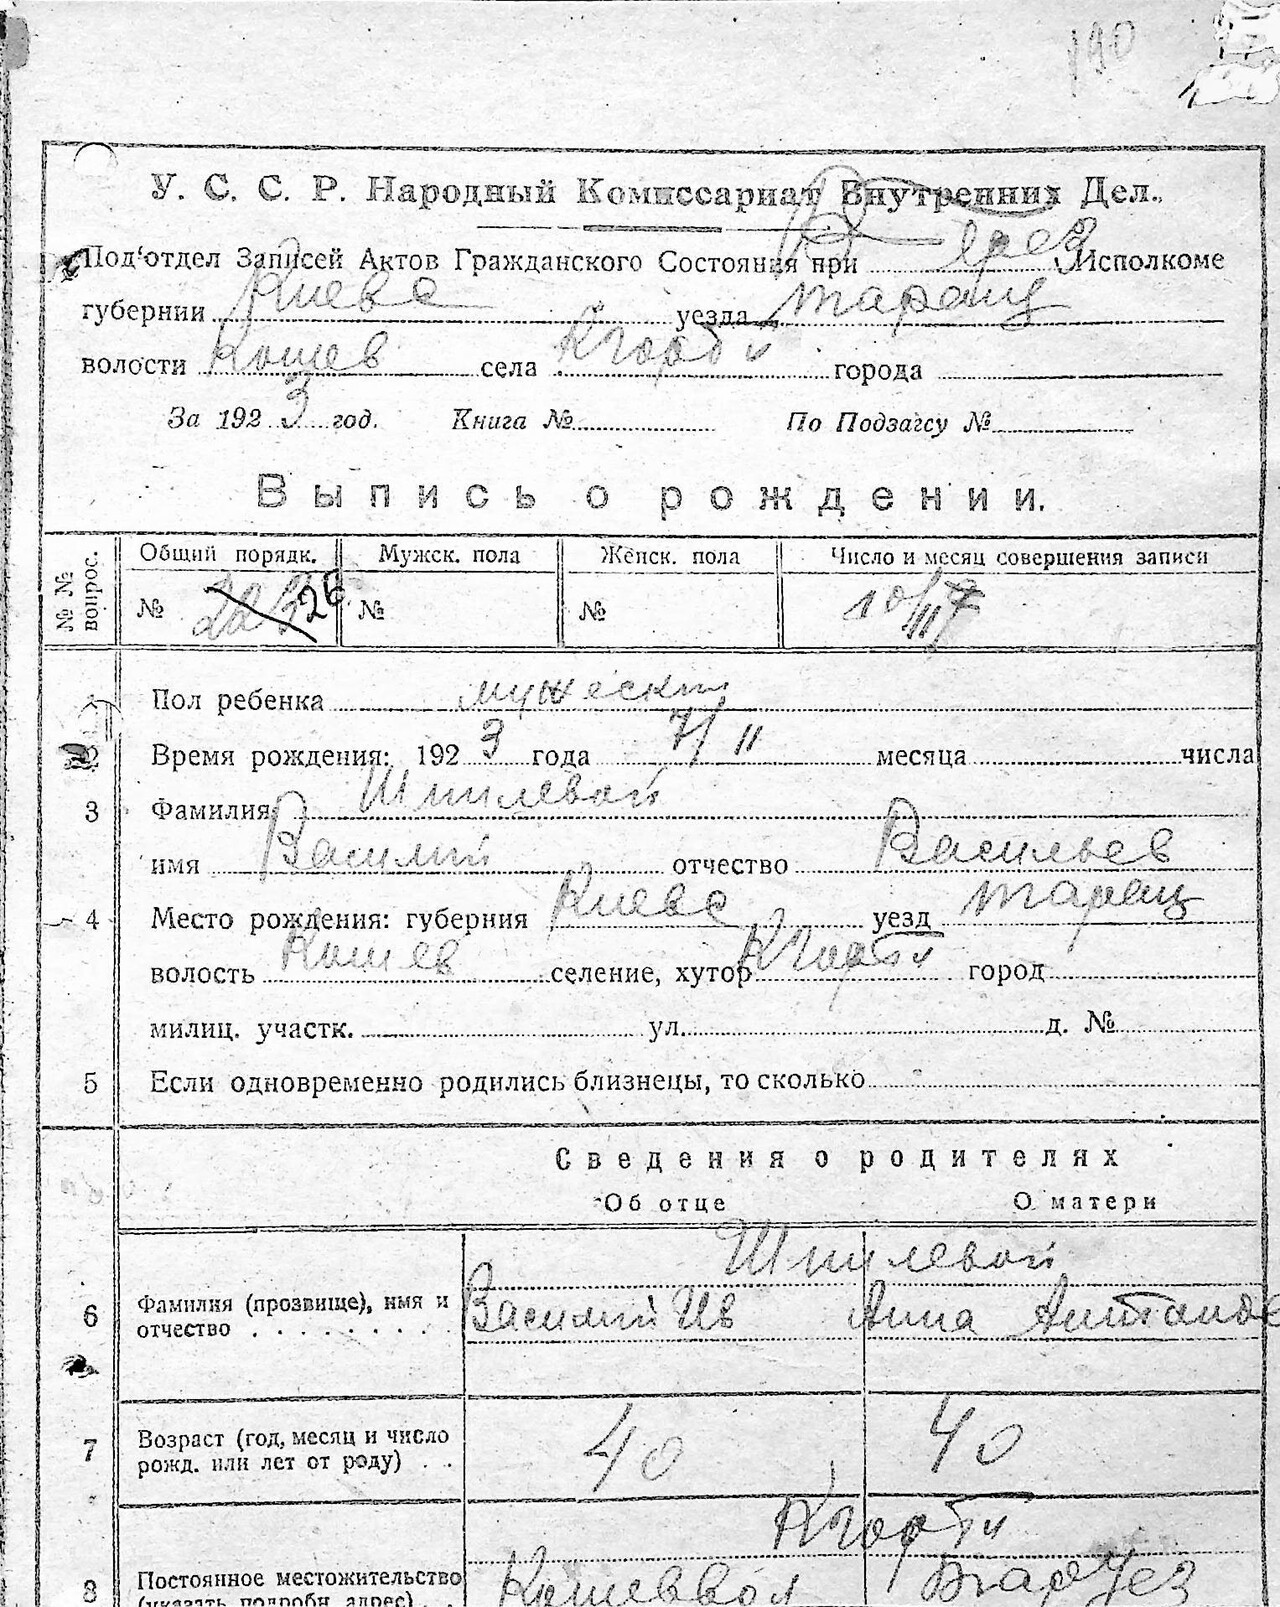 190
У. С. С. Р. Народный Комиссариат Внутренних Дел.
Под'отдел Записей Актов Гражданского Состояния при Исполкоме
губернии Киевс уезда таращ
волости Кошев села КГорби города
За 1923 год. Книга № По Подзагсу №
Выпись о рождении.
№ № вопрос. Общий порядк. Мужск. пола Женск. пола Число и месяц совершения записи
№ 26 № №
1 Пол ребенка мужеский
2 Время рождения: 1923 года 7/II месяца числа
3 Фамилия Шпилевой
имя Василий отчество Васильев
4 Место рождения: губерния Киевс уезд таращ
волость Кошев селение, хутор КГорби город
милиц. участк. ул. д. №
5 Если одновременно родились близнецы, то сколько
Сведения о родителях
Об отце О матери
Шпилевой
6 Фамилия (прозвище), имя и отчество Василий Ив Анна
7 Возраст (год, месяц и число рожд. или лет от роду) 40 40
КГорби
8 Постоянное местожительство Кошеввол
(указать подробн. адрес)